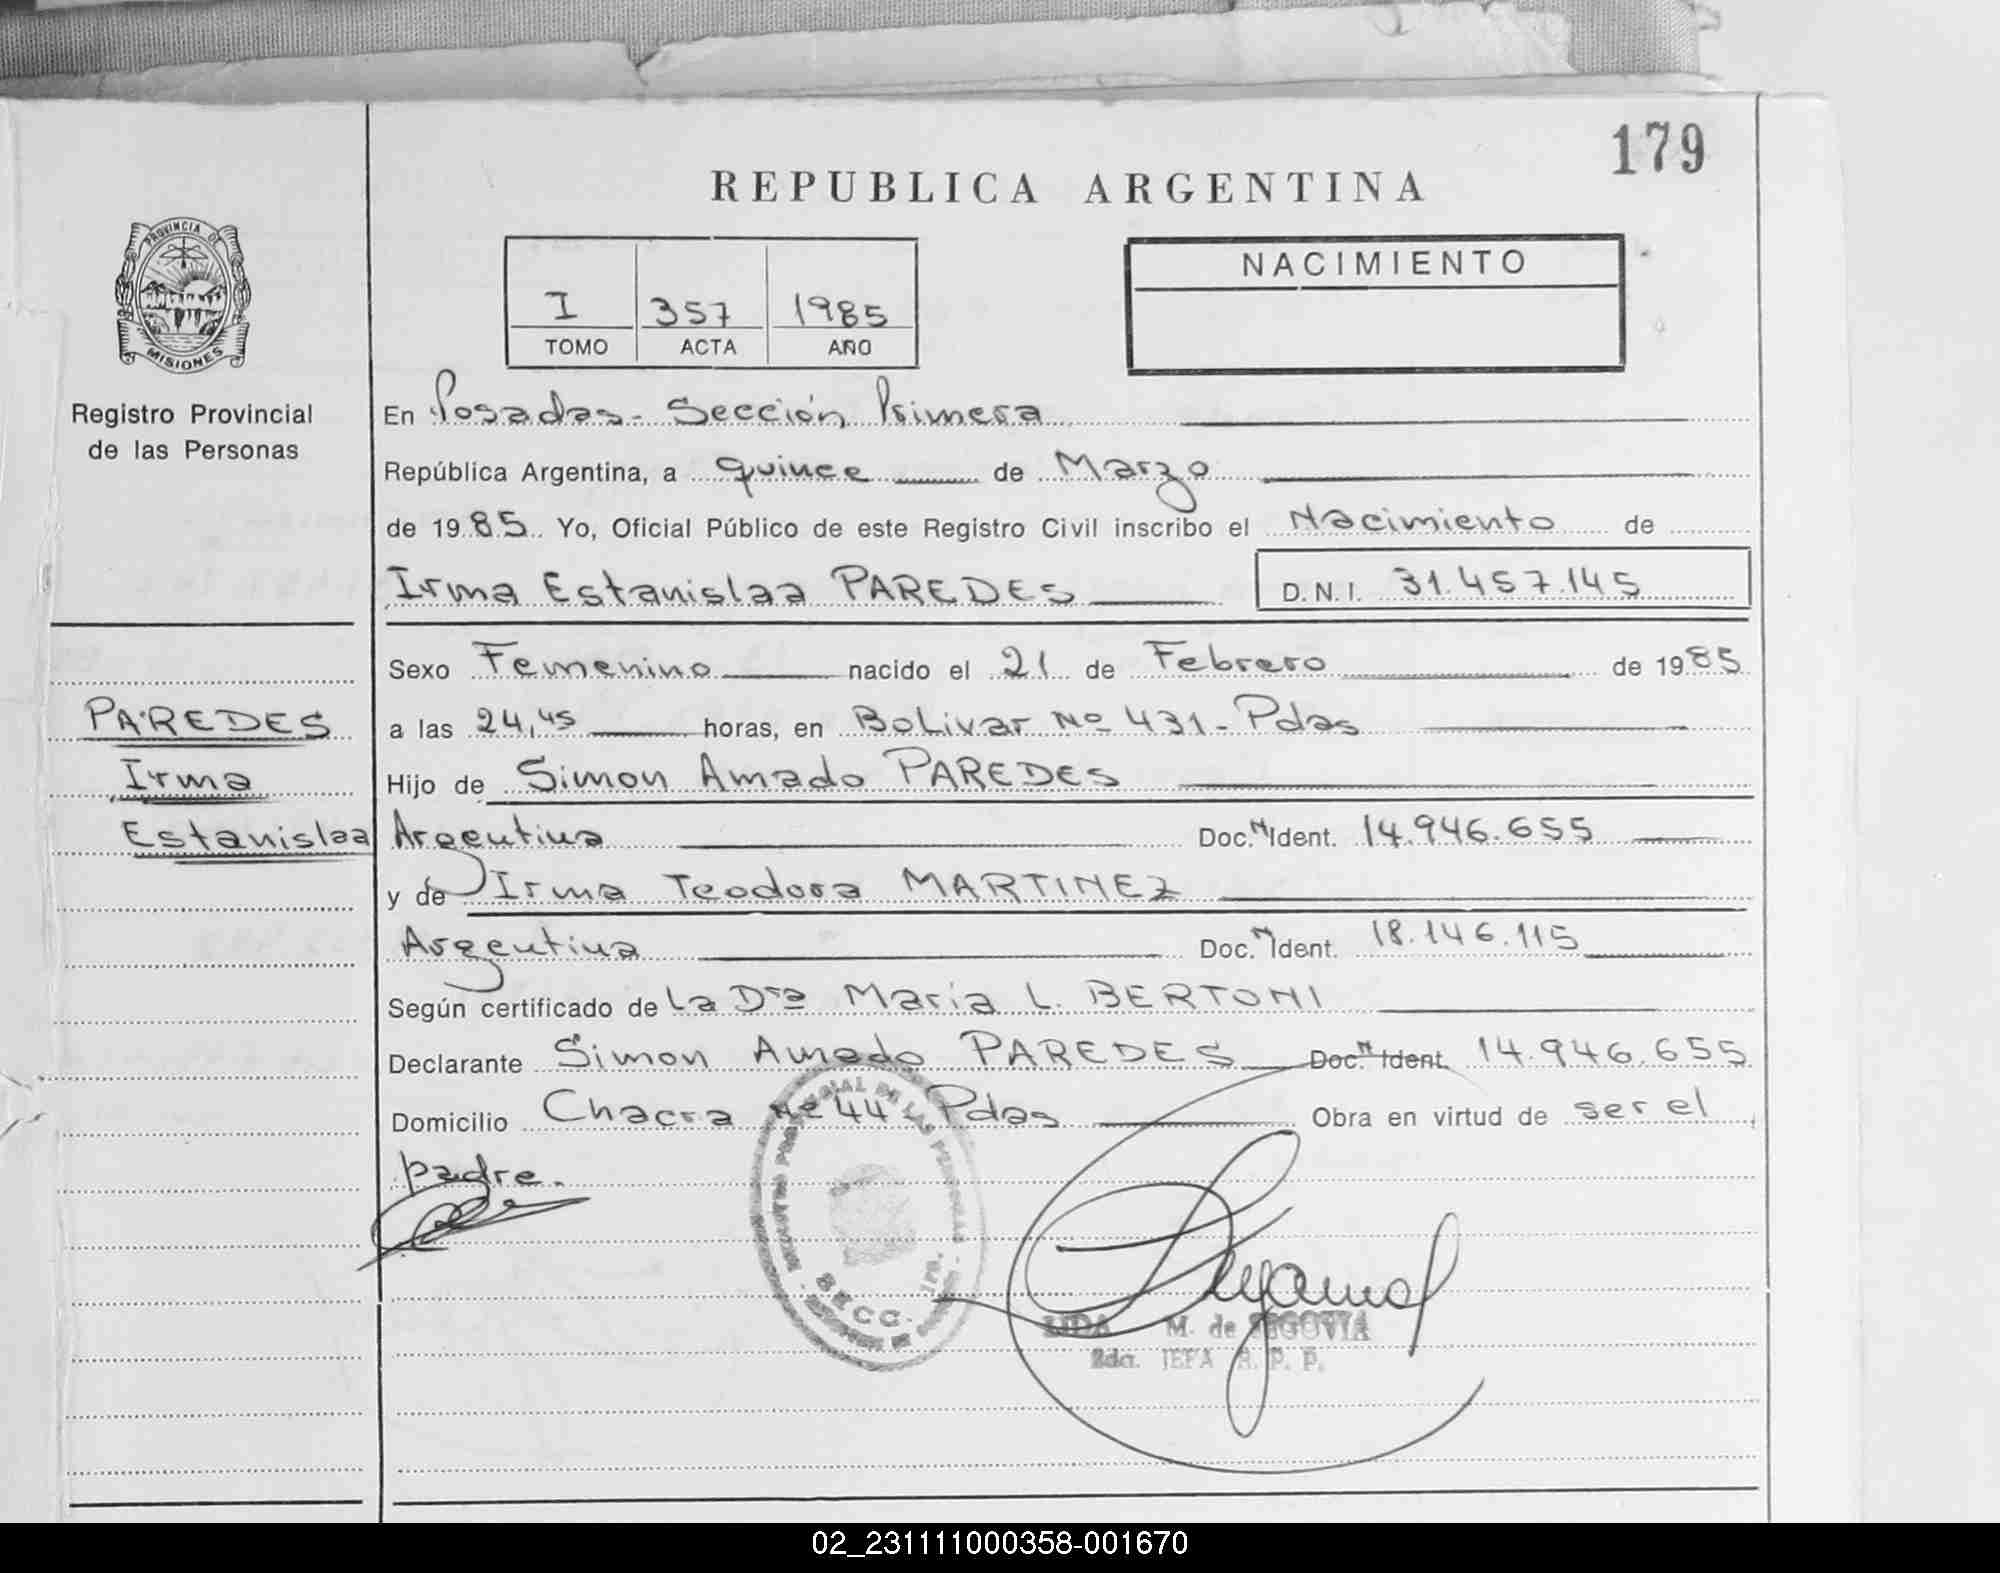 179
REPUBLICA ARGENTINA
PROVINCIA DE
MISIONES
Registro Provincial
de las Personas
I 357 1985
TOMO ACTA AÑO
NACIMIENTO
En Posadas - Sección Primera
República Argentina, a quince de Marzo
de 1985 Yo, Oficial Público de este Registro Civil inscribo el Nacimiento de
Irma Estanislaa PAREDES D.N.I. 31.457.145
Sexo Femenino nacido el 21 de Febrero de 1985
PAREDES
Irma
Estanislaa
a las 24,45 horas, en Bolivar Nº 431 - Pdas
Hijo de Simon Amado PAREDES
Argentina Doc. N Ident. 14.946.655
y de Irma Teodora MARTINEZ
Argentina Doc. N Ident. 18.146.115
Según certificado de La Dra Maria L. BERTONI
Declarante Simon Amado PAREDES Doc. N Ident. 14.946.655
Domicilio Chacra Nº 44 Pdas Obra en virtud de ser el
padre.
SECC. 1ra.
LIDA M. de SEGOVIA
2da. JEFA R. P. P.
02_231111000358-001670